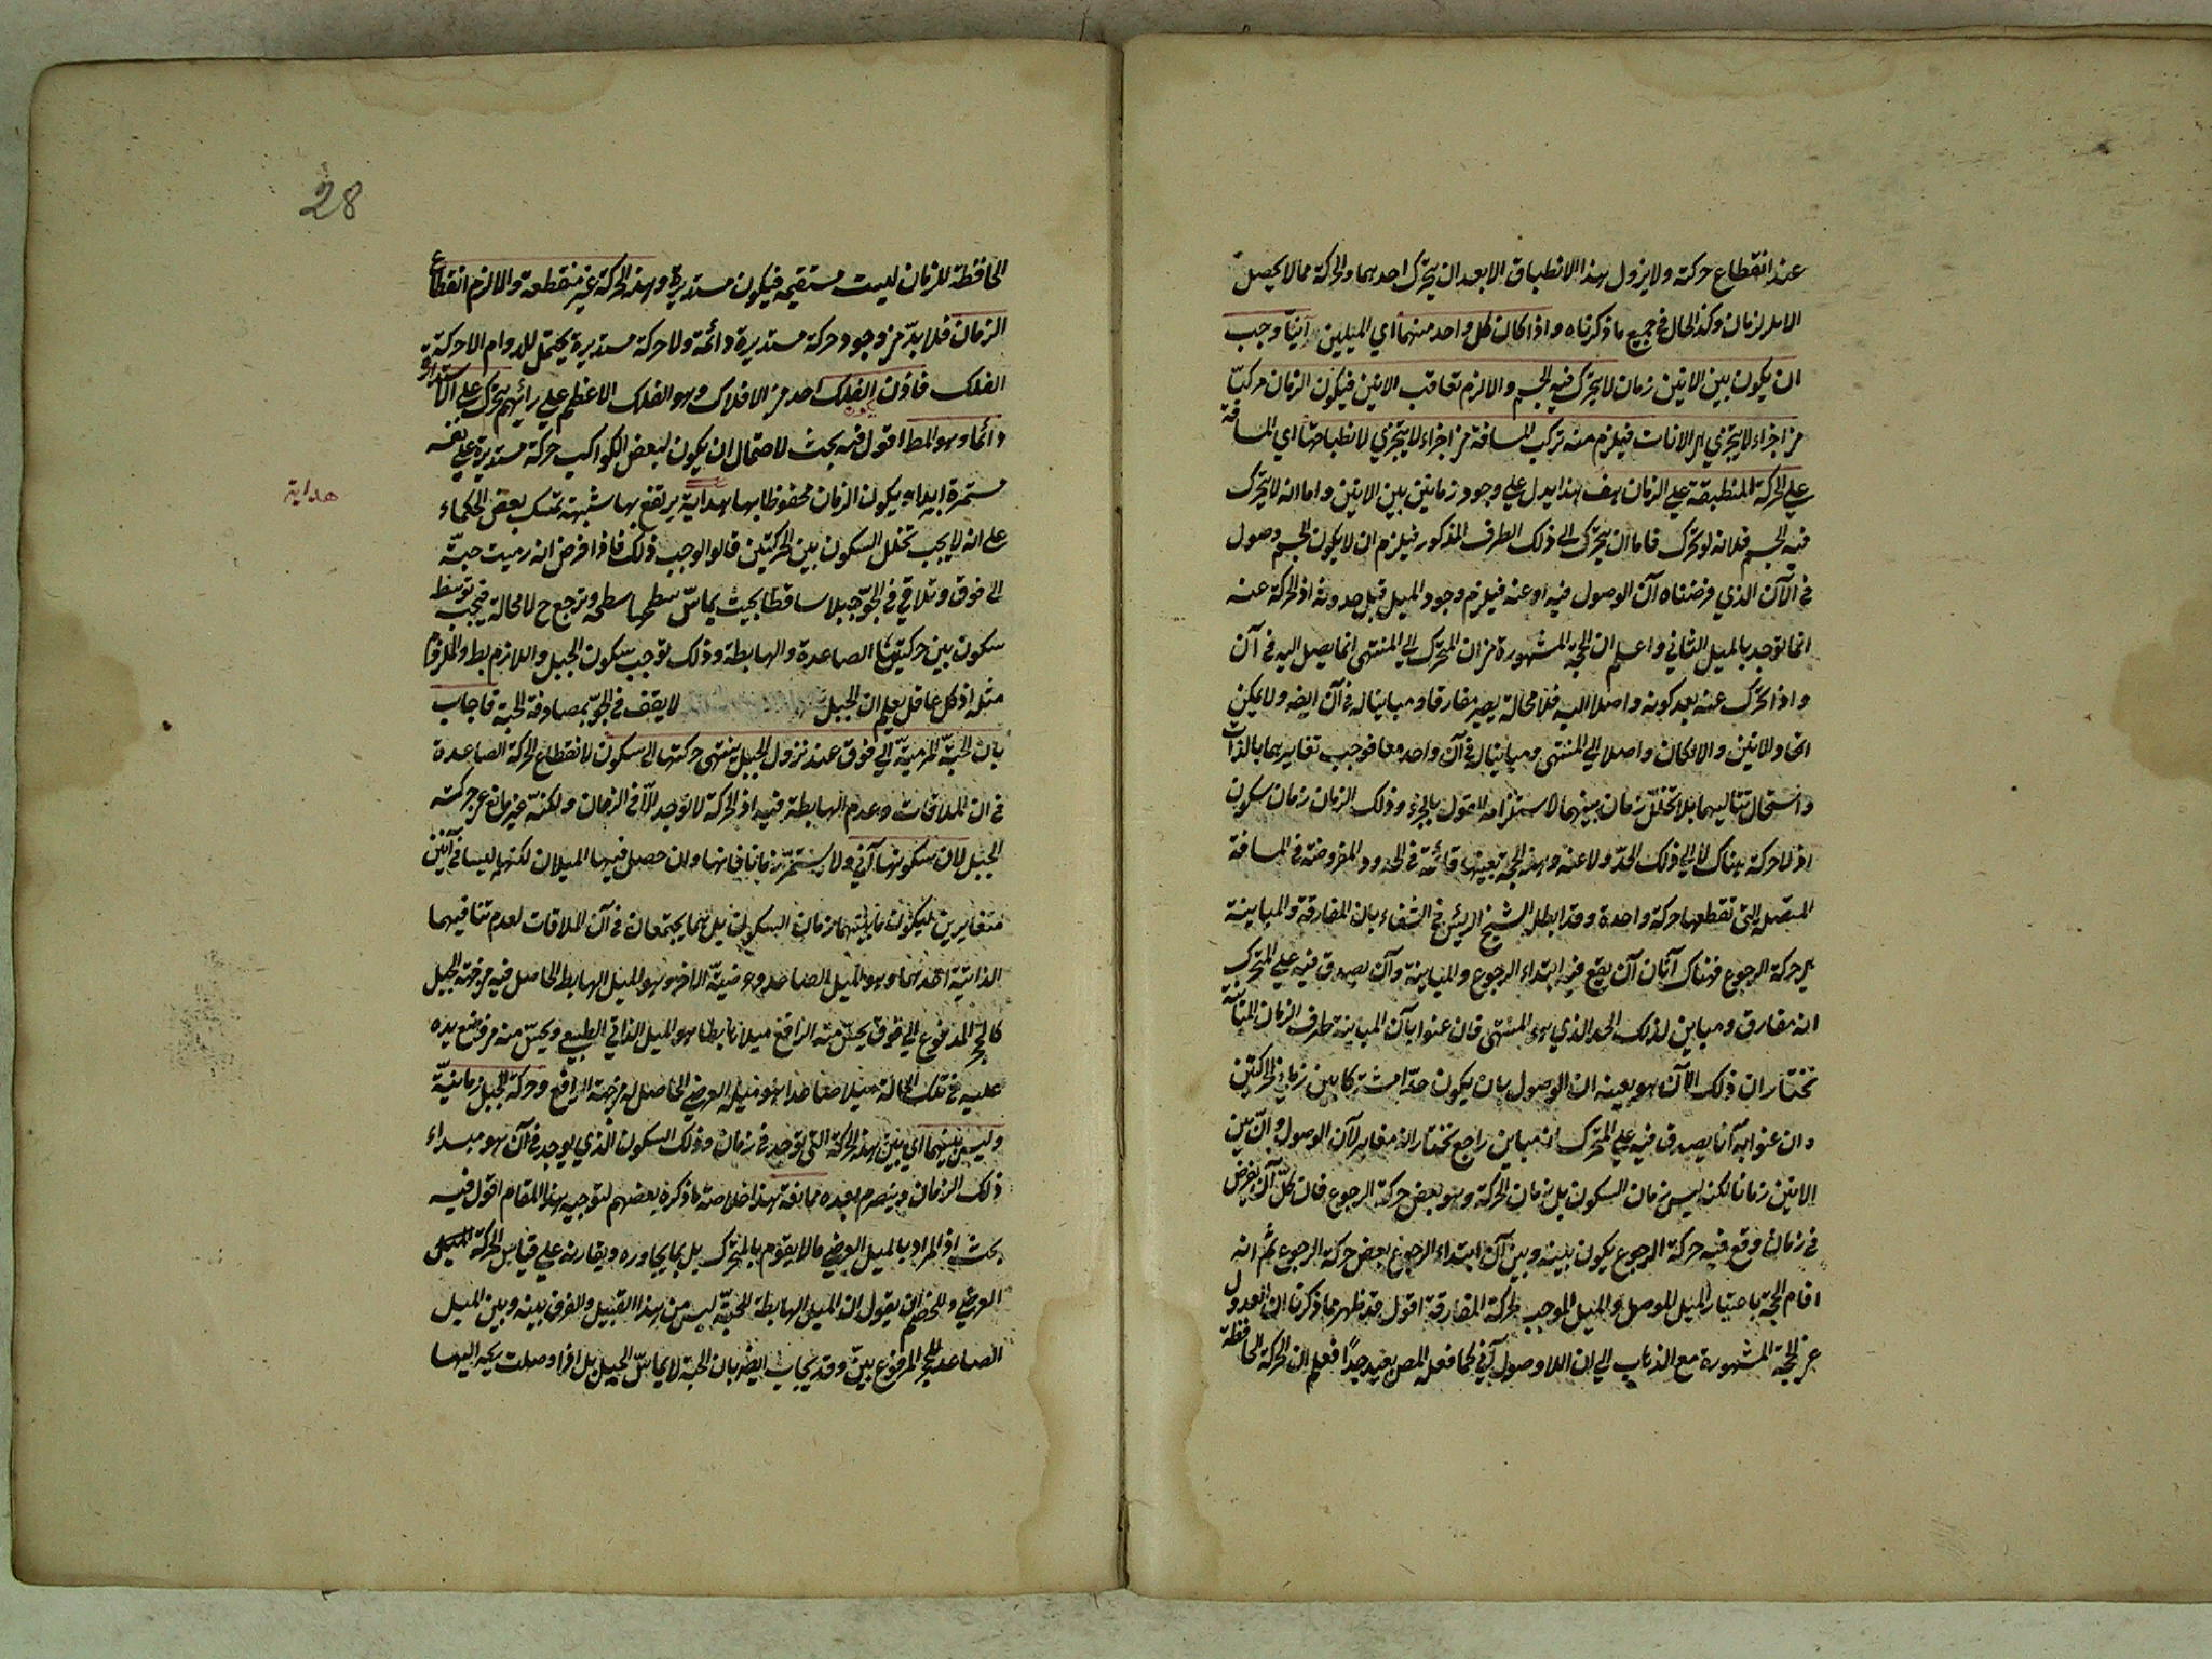 عند انقطاع حركة ولا يزول هذا الانطباق الا بعد ان يتحرك احدهما والحركة مما لا يحصل
الا في الزمان وكذا الحال في جميع ما ذكرناه واذا كان كل واحد منهما اي الميلين آنيّا وجب
ان يكون بين الانين زمان لا يتحرك فيه الجسم والا لزم تعاقب الانين فيكون الزمان مركبّا
من اجزاء لا يتجزي هي الانات فيلزم منه تركب المسافة من اجزاء لا يتجزي لانطباقها اي المسافة
علي الحركة المنطبقة علي الزمان هف هذا يدل علي وجود زمان بين الانين واما انه لا يتحرك
فيه الجسم فلانه لو تحرك فاما ان يتحرك الى ذلك الطرف المذكور فيلزم ان لا يكون الجسم وصول
في الآن الذي فرضناه آن الوصول فيه او عنه فيلزم وجود الميل قبل حدوثه اذ الحركة عنه
انما توجد بالميل الثاني واعلم ان الحجة المشهورة من ان المتحرك الي المنتهى انما يصل اليه في آن
واذا تحرك عنه بعد كونه واصلا اليه فلا محالة يصير مفارقا ومباينا له في آن ايضه ولا يمكن
اتحاد الانين والا لكان واصلا الي المنتهى ومباينا له في آن واحد معا فوجب تغايرهما بالذات
واستحال تتاليهما بلا تخلل زمان بينهما لاستلزامه القول بالجزء وذلك الزمان زمان سكون
اذ لا حركة هناك لا الي ذلك الحدّ ولا عنه وهذه الحجة بعينها قائمة في الحدود المفروضة في المسافة
المتصلة التي تقطعها حركة واحدة وقد ابطل الشيخ الرئيس في الشفاء بان المفارقة والمباينة
هي حركة الرجوع فهناك آنان آن يقع فيه ابتداء الرجوع والمباينة وآن يصدق فيه علي المتحرك
انه مفارق ومباين لذلك الحد الذي هو المنتهى فان عنوا بآن المباينة طرف الزمان المباينة
نختار ان ذلك الآن هو بعينه آن الوصول بان يكون حدّا مشتركا بين زماني الحركتين
وان عنوا به آنا يصدق فيه علي المتحرك انه مباين راجع نختار انه مغاير لآن الوصول وانّ بين
الانين زمانا لكنه ليس زمان السكون بل زمان الحركة وهو بعض حركة الرجوع فان كلّ آن يفرض
في زمان وقع فيه حركة الرجوع يكون بينه وبين آن ابتداء الرجوع بعض حركة الرجوع ثم انه
اقام الحجة باعتبار الميل الموصل والميل الموجب لحركة المفارقة اقول قد ظهر مما ذكرنا ان العدول
عن الحجة المشهورة مع الذهاب الي ان اللاوصول آني كما فعله المص بعيد جدّا فعلم ان الحركة الحافظة
28
الحافظة للزمان ليست مستقيمة فيكون مستديرة وهذه الحركة غير منقطعة والا لزم انقطاع
الزمان فلا بدّ من وجود حركة مستديرة دائمة ولا حركة مستديرة يحتمل للدوام الا حركة
الفلك فاذن الفلك احد من الافلاك وهو الفلك الاعظم علي رائيهم يتحرك علي الاستدارة
دائما وهو المط اقول فيه بحث لاحتمال ان يكون لبعض الكواكب حركة مستديرة علي نفسه
هداية
مستمرة ابدا به يكون الزمان محفوظا بها هداية يرتفع بها شبهة تمسك بعض الحكماء
على انه لا يجب تخلل السكون بين الحركتين قالوا لو وجب ذلك فاذا فرض انه رميت حبّة
الى فوق وتلاقي في الجوّ جبلا ساقطا بحيث يماسّ سطحها سطحه وترجع ح لا محالة فيجب توسط
سكون بين حركتيها الصاعدة والهابطة وذلك توجب سكون الجبل واللازم بط والملزوم
مثله اذ كل عاقل يعلم ان الجبل لا يقف في الجوّ بمصادفة الحبة فاجاب
بان الحبّة المرميّة الي فوق عند نزول الجبل ينتهى حركتها الى سكون لانقطاع الحركة الصاعدة
في ان الملاقات وعدم الهابطة فيه اذ الحركة لا توجد الّا في الزمان ولكنّه غير مانع عن حركته
الجبل لان سكونها آني ولا يستمرّ زمانا فانها وان حصل فيها الميلان لكنهما ليسا في آنين
متغايرين ليكون ما بينهما زمان السكون بل هما يجتمعان في آن الملاقات لعدم تنافيهما
الذاتية احدهما وهو الميل الصاعد وعرضيّة الاخر وهو الميل الهابط الحاصل فيه من جهة الجبل
كالحجر المدفوع الي فوق يحسّ منه الرافع ميلا هابطا هو الميل الذاتي الطبيعي ويحسّ منه من وضع يده
عليه في تلك الحالة ميلا صاعدا هو ميله العرضي الحاصل له من جهة الرافع وحركة الجبل زمانيّة
وليس بينهما اي بين هذه الحركة التي توجد في زمان وذلك السكون الذي يوجد في آن هو مبداء
ذلك الزمان وينصرم بعده ممانعة هذا خلاصة ما ذكره بعضهم لتوجيه هذا المقام اقول فيه
بحث اذ المراد بالميل العرضي ما لا يقوم بالمتحرك بل بما يجاوره ويقارنه علي قياس الحركة
العرضي وللخصم ان يقول ان الميل الهابط للحبّة ليس من هذا القبيل والفرق بينه وبين الميل
الصاعد للحجر المرفوع بيّن وقد يجاب ايضه بان الحبة لا يماسّ الجبل بل اذا وصلت يحه اليها